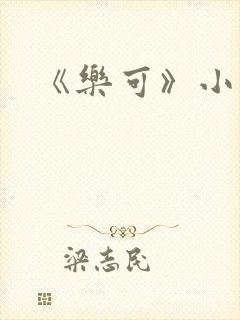 《樂可》小
梁志民